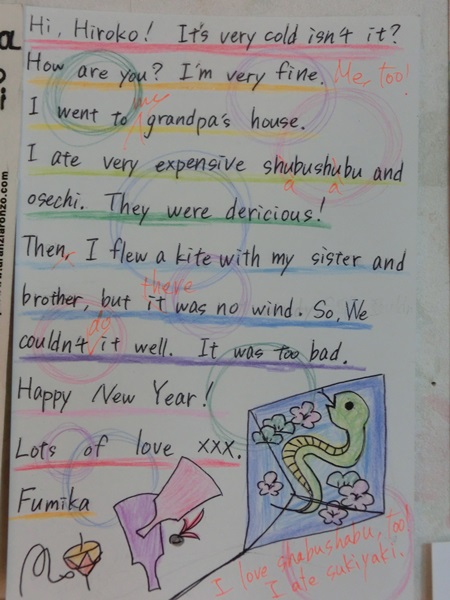 Hi, Hiroko! It's very cold isn't it?
How are you? I'm very fine. Me, too!
my
I went to grandpa's house.
I ate very expensive shubushubu and
a a
osechi. They were dericious!
Then, I flew a kite with my sister and
there
brother, but it was no wind. So, We
do
couldn't it well. It was too bad.
Happy New Year!
Lots of love xxx.
Fumika
I love shabushabu, too!
I ate sukiyaki.